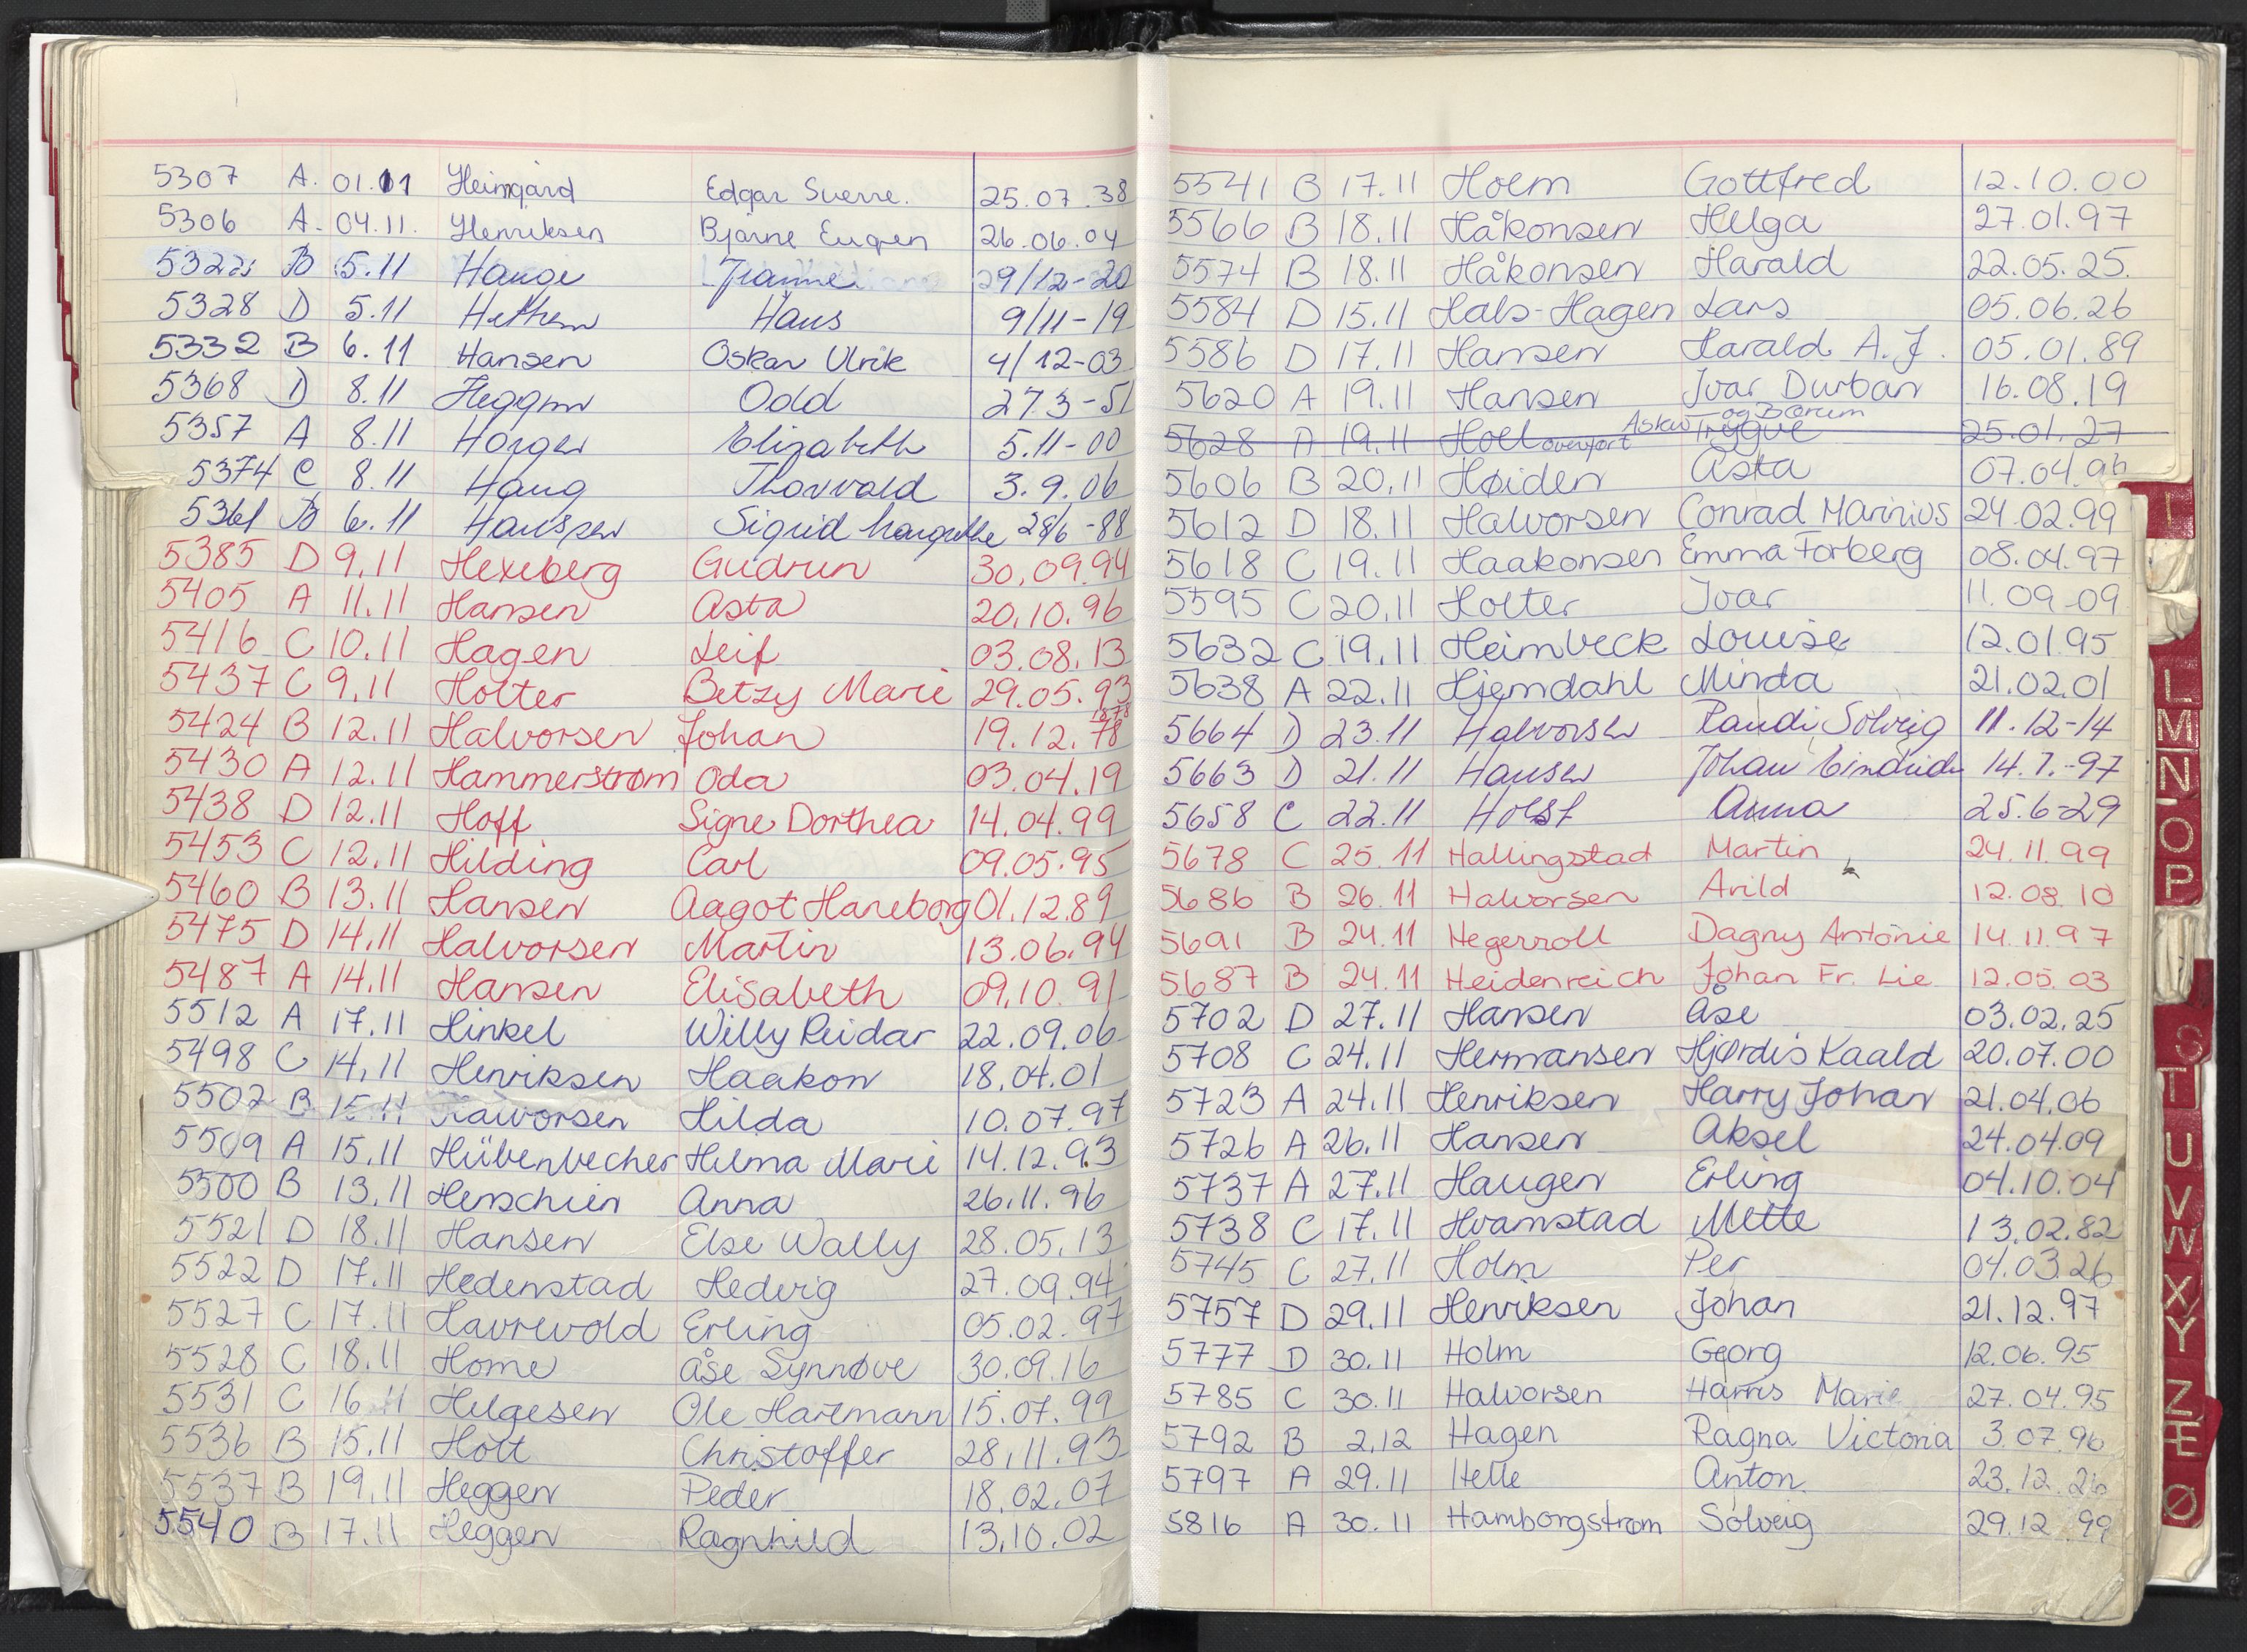 5307 A. 01.11 Heimgård Edgar Sverre. 25.07.38
5306 A. 04.11. Henriksen Bjarne Eugen 26.06.04
B 5.11 Hauge 29/12-20
5328 D 5.11 Hans 9/11-19
5332 B 6.11 Hansen Oskar Ulrik 4/12-03
5368 D 8.11 Heggen Odd 27.3-51
5357 A 8.11 Elizabeth 5.11-00
5374 C 8.11 Haug Thorvald 3.9.06
5361 B 6.11 Hanssen Sigrid Margrethe 28/6-88
5385 D 9.11 Hexeberg Gudrun 30.09.94
5405 A 11.11 Hansen Asta 20.10.96
5416 C 10.11 Hagen Leif 03.08.13
5437 C 9.11 Holter Betzy Marie 29.05.93
5424 B 12.11 Halvorsen Johan 19.12.78
5430 A 12.11 Hammerstrøm Oda 03.04.19
5438 D 12.11 Hoff Signe Dorthea 14.04.99
5453 C 12.11 Hilding Carl 09.05.95
5460 B 13.11 Hansen Aagot Haneborg 01.12.89
5475 D 14.11 Halvorsen Martin 13.06.94
5487 A 14.11 Hansen Elisabeth 09.10.91
5512 A 17.11 Hinkel Willy Reidar 22.09.06
5498 C 14.11 Henriksen Haakon 18.04.01
5502 B 15.11 Halvorsen Hilda 10.07.97
5509 A 15.11 Hübenbecher Hilma Marie 14.12.93
5500 B 13.11 Herschien Anna 26.11.96
5521 D 18.11 Hansen Else Wally 28.05.13
5522 D 17.11 Hedenstad Hedvig 27.09.94
5527 C 17.11 Havrevold Erling 05.02.97
5528 C 18.11 Horne Åse Synnøve 30.09.16
5531 C 16.11 Helgesen Ole Hartmann 15.07.99
5536 B 15.11 Holt Christoffer 28.11.93
5537 B 19.11 Heggen Peder 18.02.07
5540 B 17.11 Heggen Ragnhild 13.10.02
5541 B 17.11 Holm Gottfred 12.10.00
5566 B 18.11 Håkonsen Helga 27.01.97
5574 B 18.11 Håkonsen Harald 22.05.25.
5584 D 15.11 Hals-Hagen Lars 05.06.26
5586 D 17.11 Hansen Harald A. J. 05.01.89
5620 A 19.11 Hansen Ivar Durban 16.08.19
5628 A 19.11 Holl overført Asker og Bærum Trygve 25.01.27
5606 B 20.11 Høiden Asta 07.04.96
5612 D 18.11 Halvorsen Conrad Marinius 24.02.99
5618 C 19.11 Haakonsen Emma Forberg 08.04.97
5595 C 20.11 Holter Ivar 11.09.09
5632 C 19.11 Heimbeck Louise 12.01.95
5638 A 22.11 Hjemdahl Minda 21.02.01
5664 D 23.11 Halvorsen Randi Solveig 11.12-14
5663 D 21.11 Hansen Johan 14.7.-97
5658 C 22.11 Holst Anna 25.6-29
5678 C 25.11 Hallingstad Martin 24.11.99
5686 B 26.11 Halvorsen Arild 12.08.10
5691 B 24.11 Hegerroll Dagny Antonie 14.11.97
5687 B 24.11 Heidenreich Johan Fr. Lie 12.05.03
5702 D 27.11 Hansen Åse 03.02.25
5708 C 24.11 Hermansen Hjørdis Kaald 20.07.00
5723 A 24.11 Henriksen Harry Johan 21.04.06
5726 A 26.11 Hansen Aksel 24.04.09
5737 A 27.11 Haugen Erling 04.10.04
5738 C 17.11 Hvamstad Mette 13.02.82
5745 C 27.11 Holm Per 04.03.26
5757 D 29.11 Henriksen Johan 21.12.97
5777 D 30.11 Holm Georg 12.06.95
5785 C 30.11 Halvorsen Harris Marie 27.04.95
5792 B 2.12 Hagen Ragna Victoria 3.07.96
5797 A 29.11 Helle Anton 23.12.26
5816 A 30.11 Hamborgstrøm Solveig 29.12.99
I
L
M
N
O
P
S
T
U
V
W
X
Y
Z
Æ
Ø